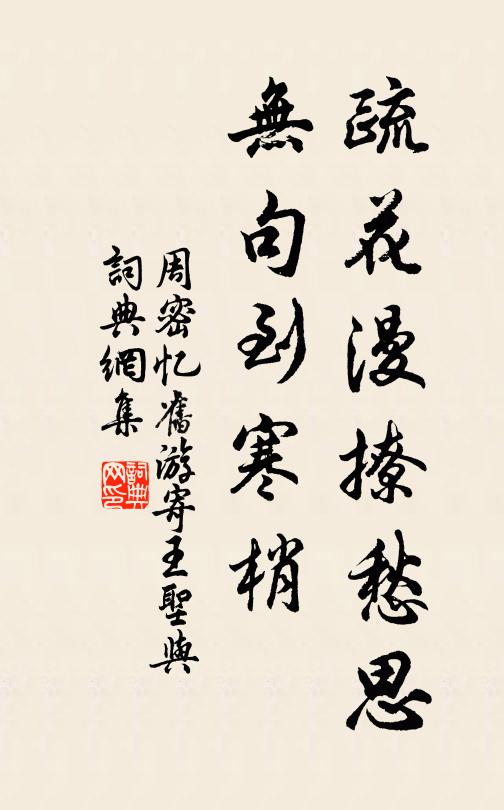 疏花漫撩愁思
無句到寒梢
周密忆舊游寄王聖與
詞典網集
詞典網印